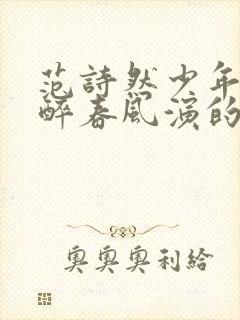 范詩然少年
醉春風演的
奧奧奧利給